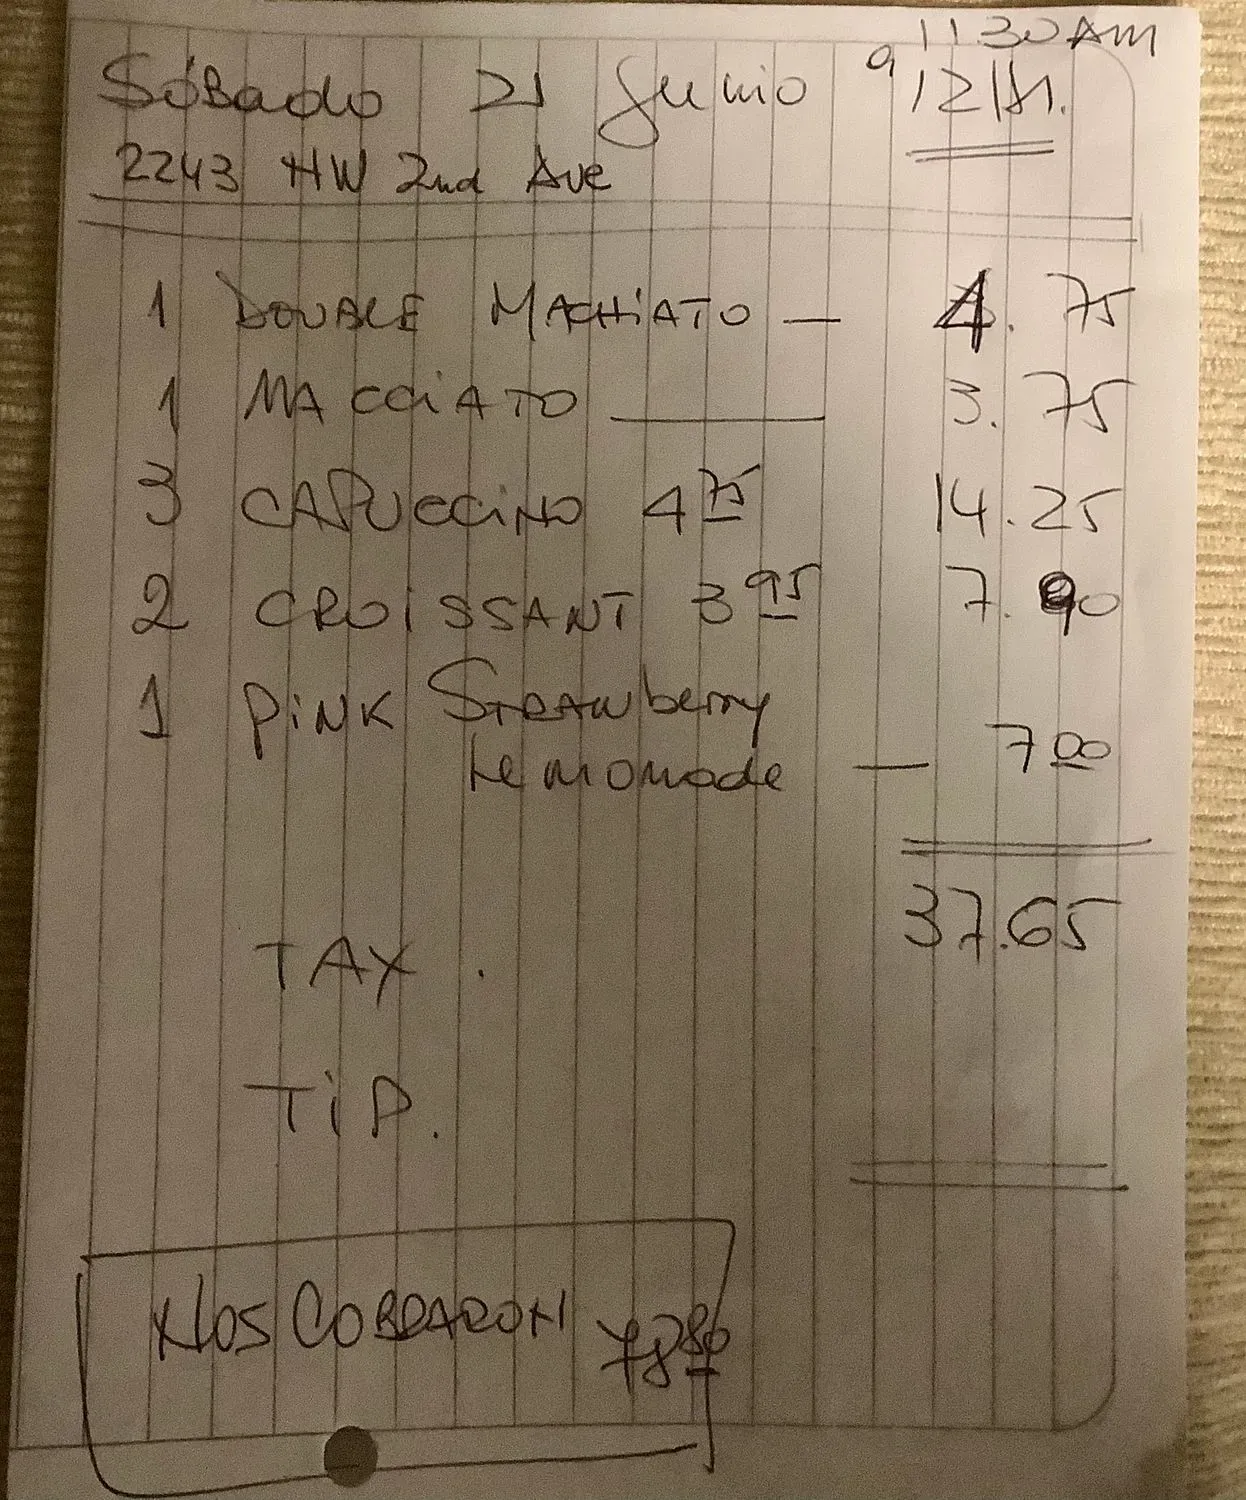 11:30 AM
Sábado 21 Junio a 12 M.
2243 NW 2nd Ave
1 DOUBLE MACHiATO — 4.75
1 MACCiATO — 3.75
3 CAPUCCiNO 4 75 14.25
2 CROiSSANT 3 95 7.90
1 PiNK STRAWberry
Lemonade — 7 00
37.65
TAX.
TiP.
NOS COBRARON 78 80